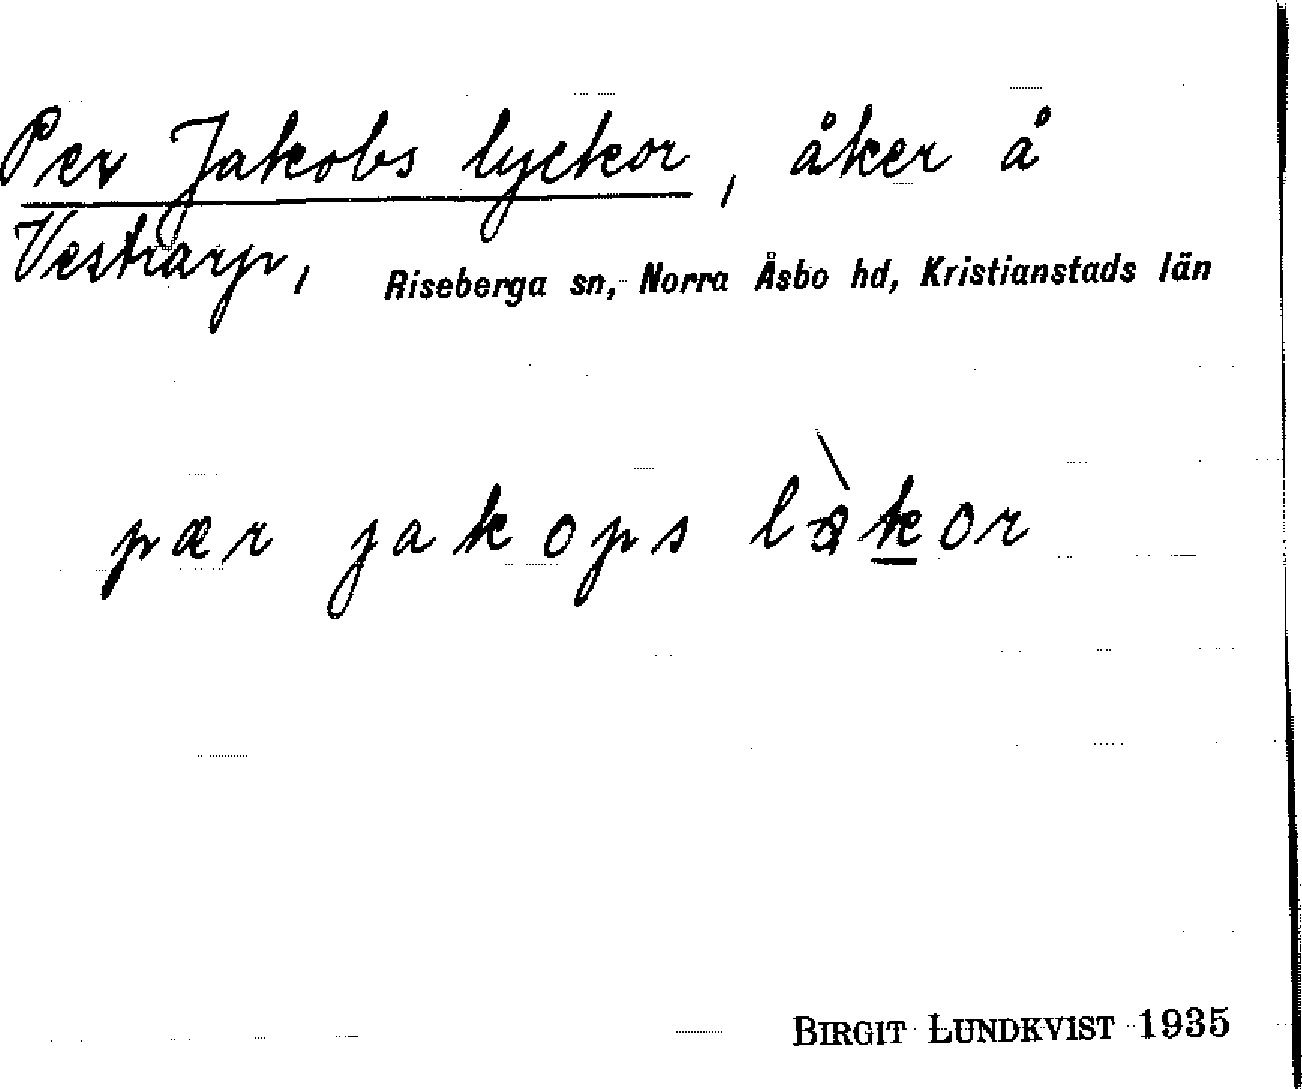 Per Jakobs lyckor, åker å
Vestrarp, Riseberga sn, Norra Åsbo hd, Kristianstads län
pær jakops lə̀kor
BIRGIT LUNDKVIST 1935